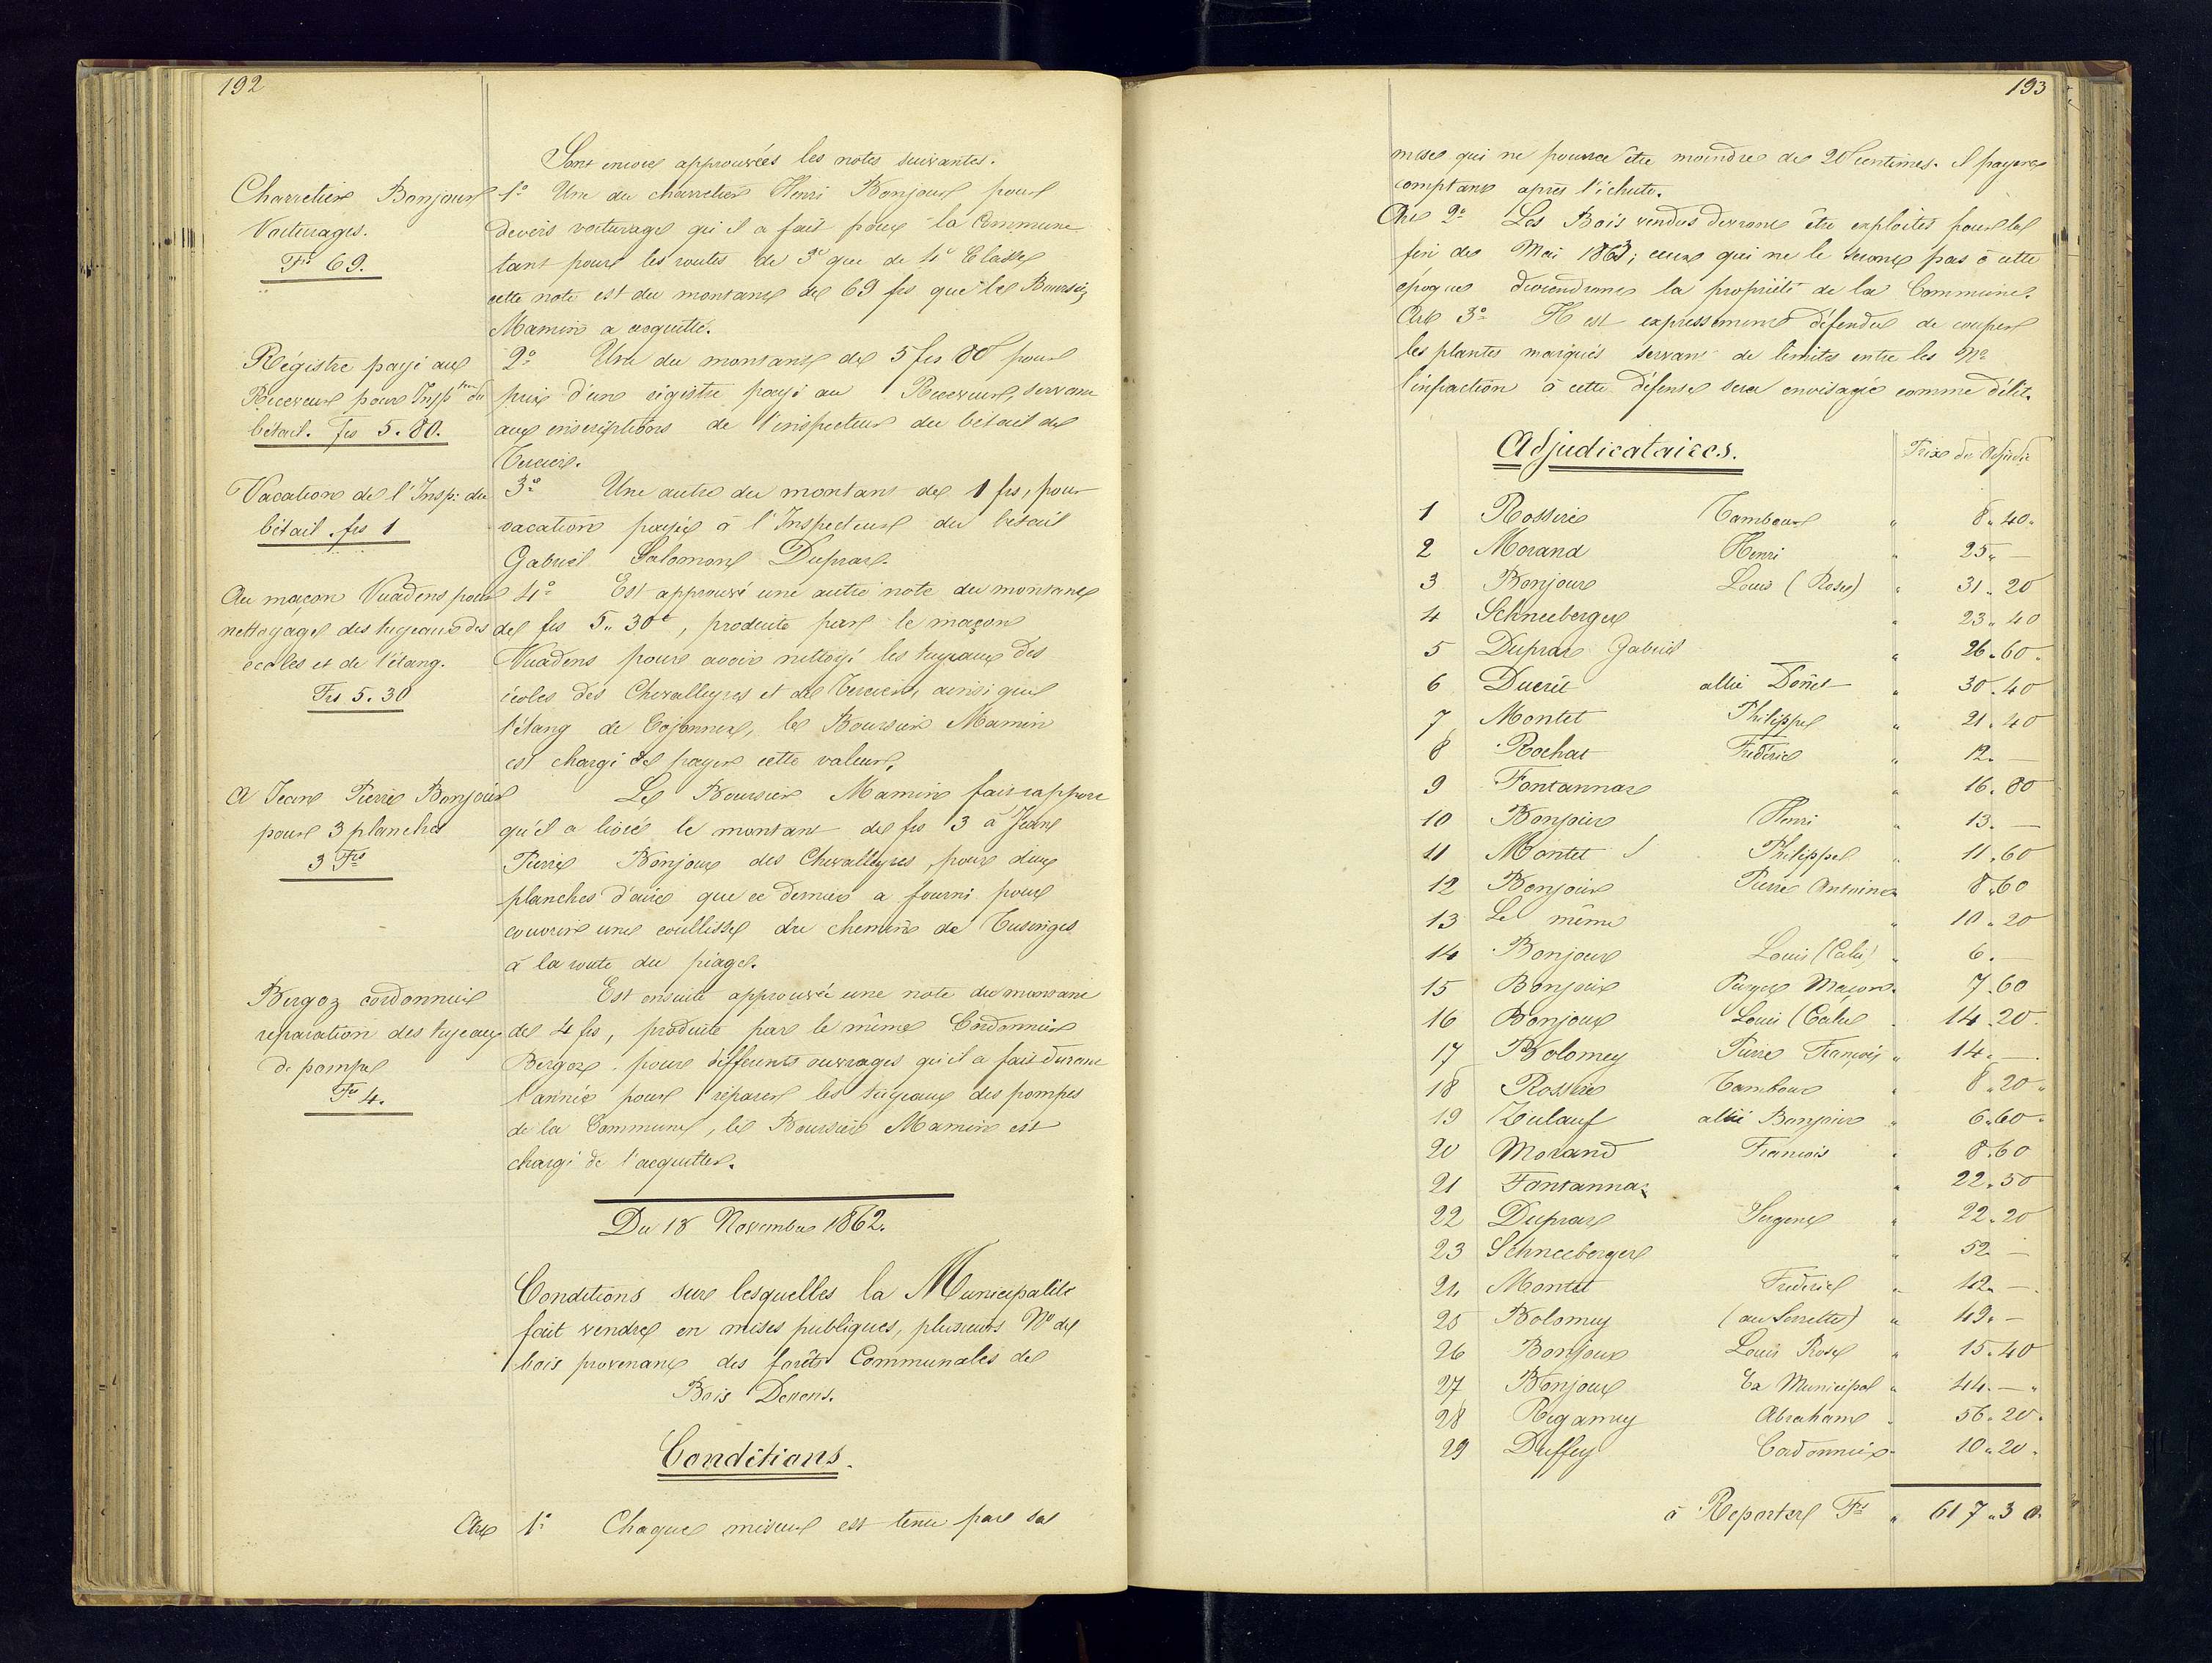 192
Sont encore approuvées les notes suivantes.
Charretier Bonjour
Voiturages.
Fs 69.
1° Une du charretier Henri Bonjour pour
divers voiturages qu'il a fait pour la Commune
tant pour les routes de 3e que de 4e Classe
cette note est du montant de 69 frs que le Boursier
Mamin a acquitté.
Régistre payé au
Receveur pour Inspteur du
bétail. frs 5.80.
2° Une du montant de 5 frs 80c pour
prix d'une régistre payé au Receveur, servant
aux enscriptions de l'inspecteur du bétail de
Tercier.
Vacation de l'Insp: du
bétail. frs 1
3° Une autre du montant de 1 frs, pour
vacation payée à l'Inspecteur du bétail
Gabriel Salomon Dupraz.
Au maçon Vuadens pour
nettoyage des tuyeaux des
écoles et de l'étang.
Frs 5.30
4° Est approuvé une autre note du montant
de frs 5.. 30c, produite par le maçon
Vuadens pour avoir nettoyé les tuyaux des
écoles des Chevalleyres et de Tercier, ainsi que
l'étang de Cojonnex, le Boursier Mamin
est chargé de payer cette valeur.
A Jean Pierre Bonjour
pour 3 planches
3 Frs
Le Boursier Mamin fait rapport
qu'il a livré le montant de frs 3 à Jean
Pierre Bonjour des Chevalleyres, pour deux
planches d'aire que ce dernier a fourni pour
couvrir une coullisse du chemin de Tusinges
à la route du piage.
Bergoz cordonnier
réparation des tuyeaux
de pompe
Fs 4.
Est ensuite approuvée une note du montant
de 4 frs, produite par le même Cordonnier
Bergoz, pour différents ouvrages qu'il a fait durant
l'année pour réparer les tuyeaux des pompes
de la Commune, le Boursier Mamin est
chargé de l'acquitter.
Du 18 Novembre 1862.
Conditions sur lesquelles la Municipalité
fait vendre en mises publiques, plusieurs No de
bois provenant des forêts Communales de
Bois Devens.
Conditions.
Art 1° Chaque miseur est tenu par sa
193
mise qui ne pourra être moindre de 20 Centimes. Il payera
comptant après l'échute.
Art 2° Les Bois vendus devront être exploités pour la
fin de Mai 1863; ceux qui ne le seront pas à cette
époque deviendront la propriété de la Commune.
Art 3° Il est expressement défendu de couper
les plantes marqués servant de limites entre les No
l'infraction à cette défense sera envisagée comme délit.
Adjudicataires. Prix de Adjudic
1 Rosserie Tambour " 8.. 40.
2 Morand Henri " 25.. —
3 Bonjour Louis (Rose) " 31.. 20
4 Schneeberger " 23.. 40
5 Dupraz Gabriel " 26.60.
6 Ducret allié Donet " 30.40
7 Montet Philippe " 21.40
8 Rochat Fréderic " 12. —
9 Fontannaz " 16.80
10 Bonjour Henri " 13. —
11 Montet Philippe " 11.60
12 Bonjour Pierre Antoine " 8.60
13 Le même " 10.. 20
14 Bonjour Louis (Calu) " 6. —
15 Bonjour Maçon " 7.60
16 Bonjour Louis (Calu " 14.20.
17 Bolomey Pierre François " 14. —
18 Rosserie Tambour " 8..20
19 Zulauf allié Bonjour " 6.60.
20 Morand François " 8.60
21 Fontannaz " 22.50
22 Dupraz Sergent " 22.20
23 Schneeberger " 52 —
24 Montet Fréderic " 42. —
25 Bolomey (au Serrettes) " 49. —
26 Bonjour Louis Rose " 15.40
27 Bonjour Ex Municipal " 44. —
28 Regamey Abraham " 56.20.
29 Duffey Cordonnier " 10.20.
à Reporter Frs " 617.30.